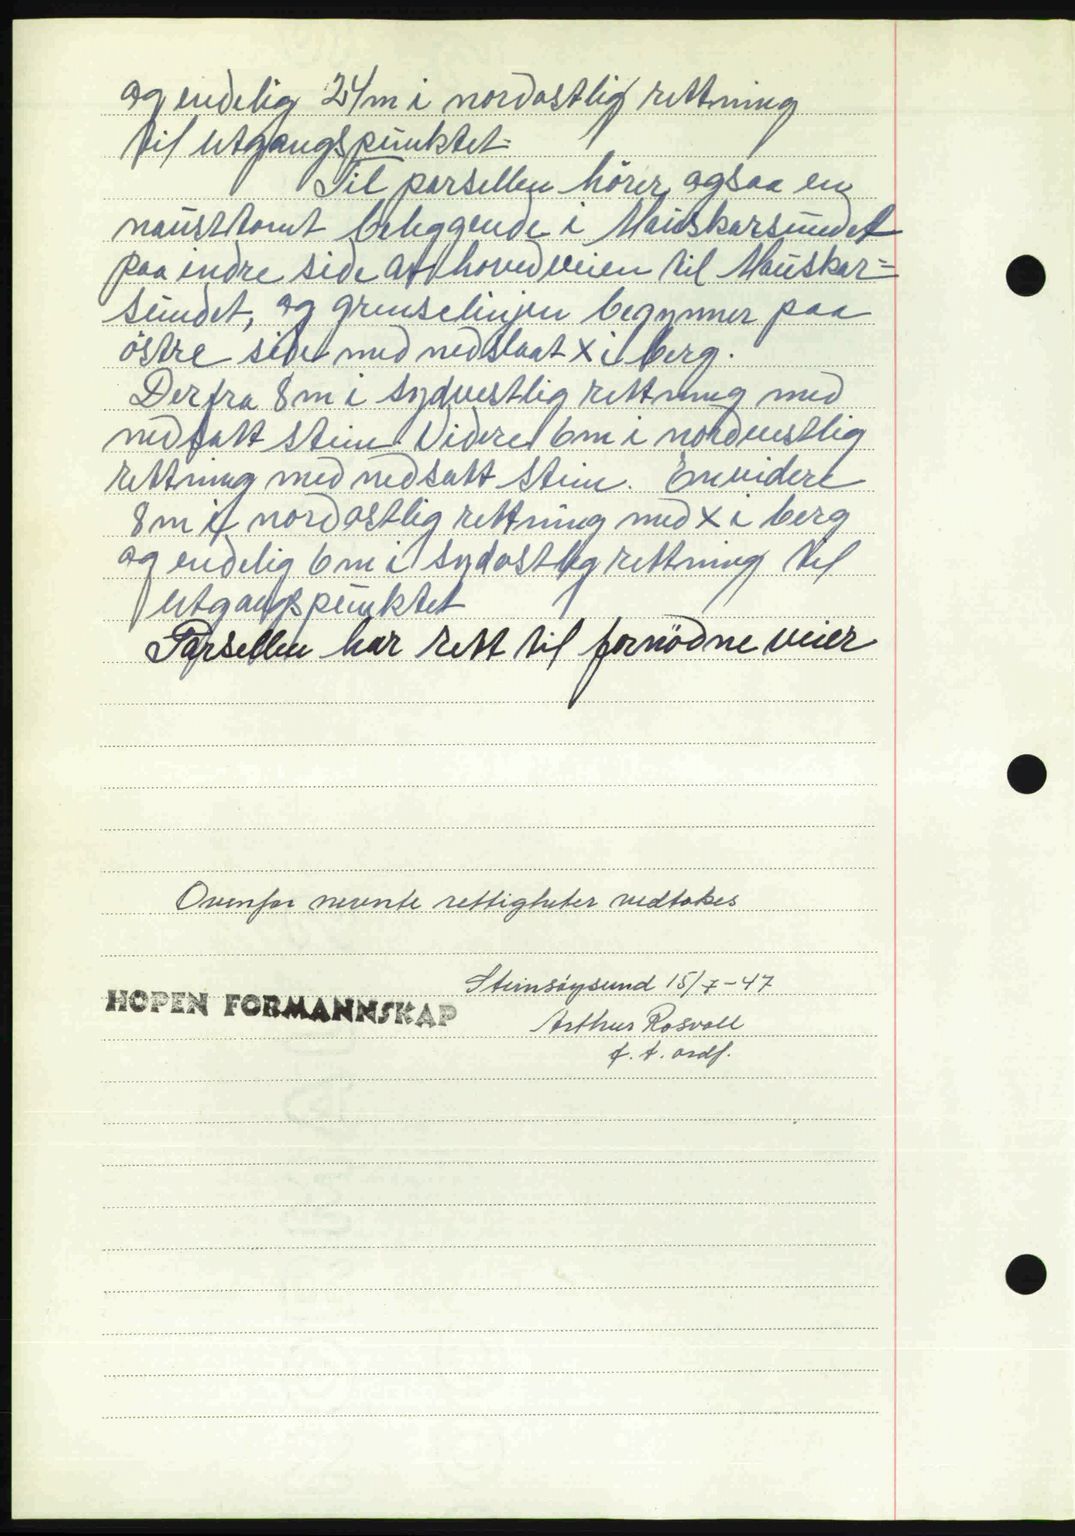 og endelig 24 m i nordostlig rettning
til utgangspunktet.
Til parsellen hörer ogsaa en
nausttomt beliggende i Mauskarsundet
paa indre side av hovedveien til Mauskar=
sundet, og grenselinjen begynner paa
östre side med nedslaat x i berg.
Derfra 8 m i sydvestlig rettning med
nedsatt stein. Videre 6 m i nordvestlig
rettning med nedsatt stein. Envidere
8 m i nordostlig rettning med x i berg
og endelig 6 m i sydostlig rettning til
utgangspunktet
Parsellen har rett til fornödne veier
Ovenfor nevnte rettigheter vedtakes
Steinsöysund 15/7-47
HOPEN FORMANNSKAP
Arthur Rosvoll
f. t. ordf.